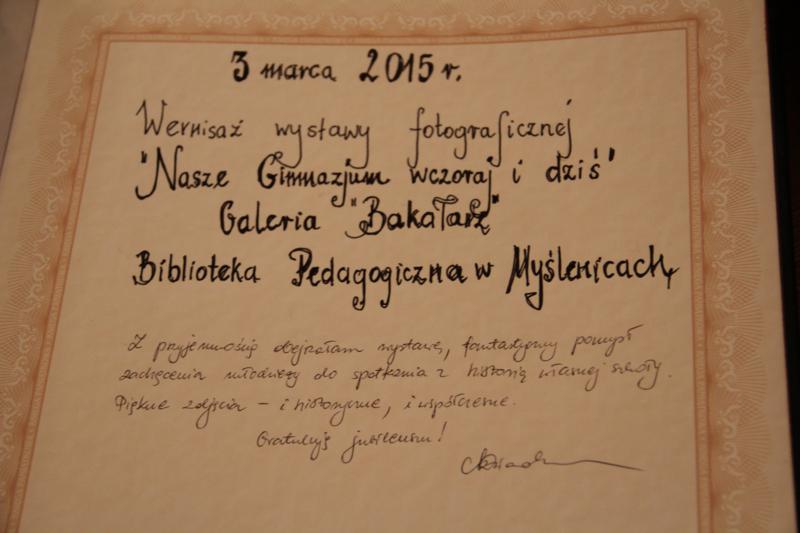 3 marca 2015 r.
Wernisaż wystawy fotograficznej
"Nasze Gimnazjum wczoraj i dziś"
Galeria "Bakałarz"
Biblioteka Pedagogiczna w Myślenicach
Z przyjemnością obejrzałam wystawę, fantastyczny pomysł
zachęcenia młodzieży do spotkania z historią własnej szkoły.
Piękne zdjęcia – i historyczne, i współczesne.
Gratuluję jubileuszu!